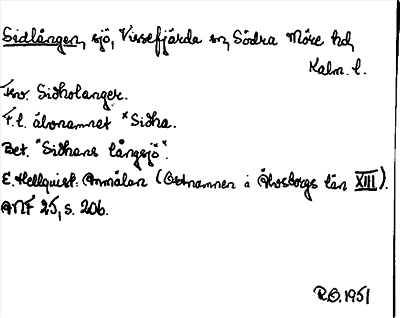 Sidlången, sjö, Vissefjärda sn, Södra Möre hd,
Kalm. l.
Fsv. Sidholanger.
F.l. älvnamnet *Sidha.
Bet. "Sidhans långsjö".
E. Hellquist: Anmälan (Ortnamnen i Älvsborgs län XIII).
ANF 25, s. 206.
R.O. 1951